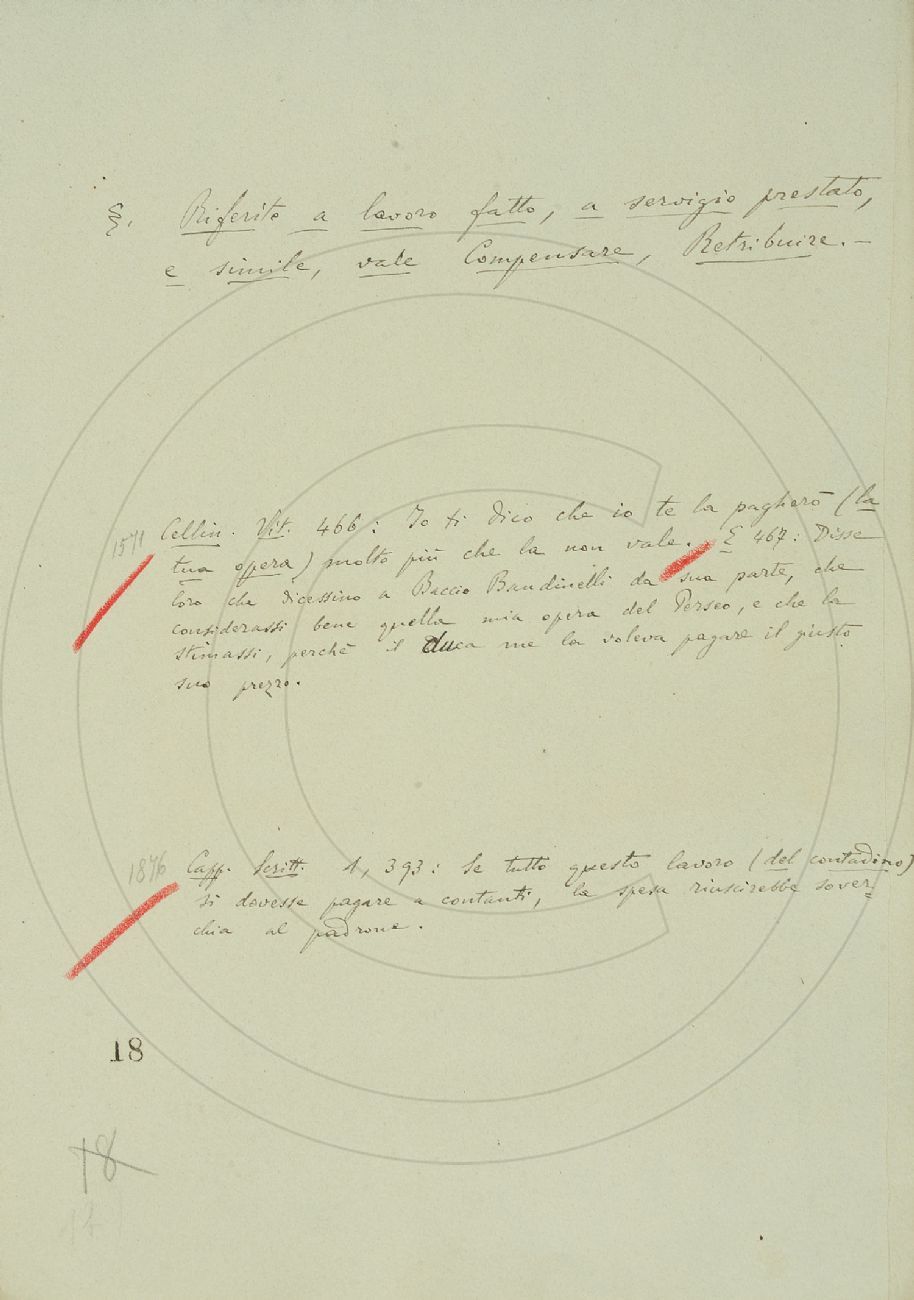 §. Riferito a lavoro fatto, a servigio prestato,
e simile, vale Compensare, Retribuire. –
1571 Cellin. Vit. 466: Io ti dico che io te la pagherò (la
tua opera) molto più che la non vale. E 467: Disse
loro che dicessino a Baccio Bandinelli da sua parte, che
considerassi bene quella mia opera del Perseo, e che la
stimassi, perchè il duca me la voleva pagare il giusto
suo prezzo.
1876 Capp. Scritt. 1, 393: Se tutto questo lavoro (del contadino)
si dovesse pagare a contanti, la spesa riuscirebbe sover=
chia al padrone.
18
18